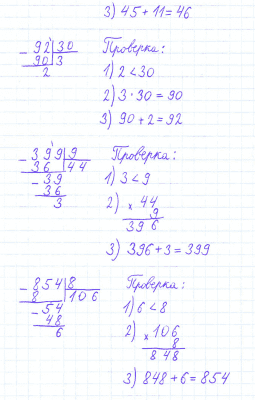 3) 45 + 11 = 46
- 92 | 30
90 | 3
2
Проверка:
1) 2 < 30
2) 3 · 30 = 90
3) 90 + 2 = 92
- 399 | 9
36 | 44
- 39
36
3
Проверка:
1) 3 < 9
2) × 44
9
396
3) 396 + 3 = 399
- 854 | 8
8 | 106
- 54
48
6
Проверка:
1) 6 < 8
2) × 106
8
848
3) 848 + 6 = 854